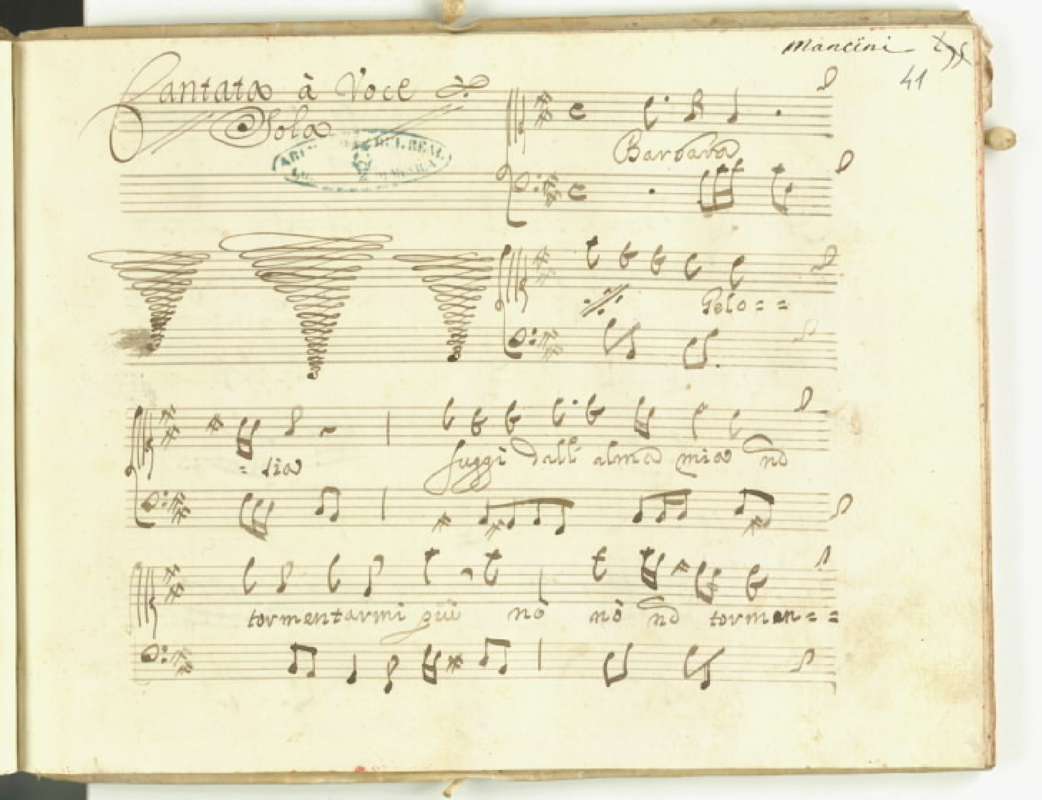 Mancini
41
Cantata à Voce
Sola
Barbara
Gelo = =
= sia fuggi dall' alma mia nò
tormentarmi più nò nò nò tormen = =